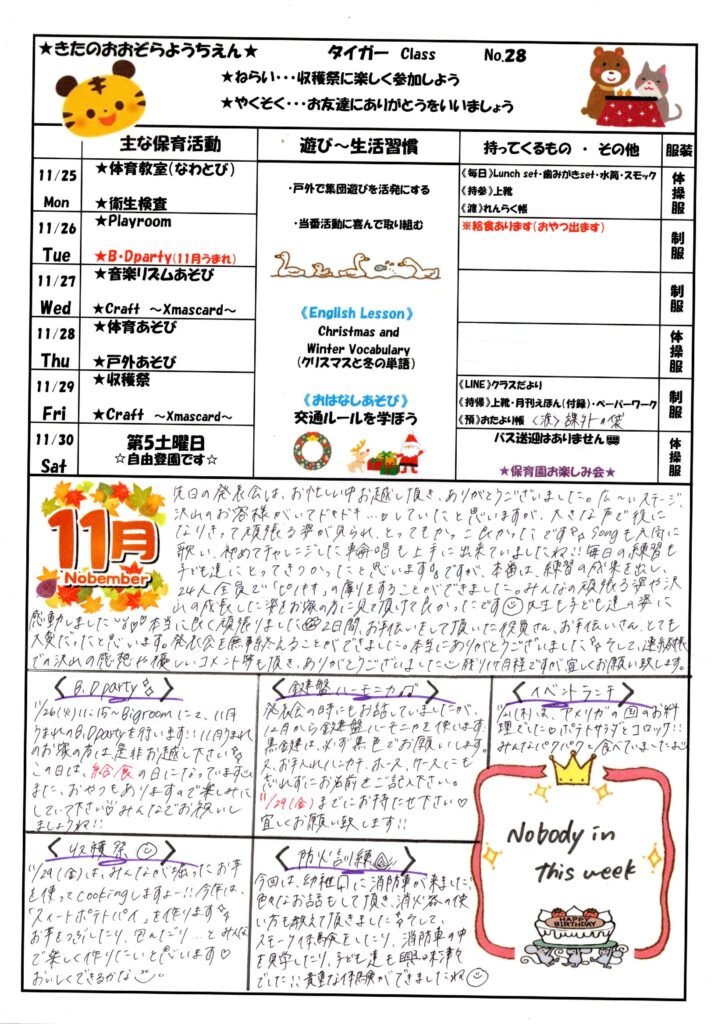 ★きたのおおぞらようちえん★ タイガー Class No.28
★ねらい・・・収穫祭に楽しく参加しよう
★やくそく・・・お友達にありがとうをいいましょう
主な保育活動 遊び～生活習慣 持ってくるもの ・ その他 服装
11/25 Mon
★体育教室(なわとび)
★衛生検査
11/26 Tue
★Playroom
★B・Dparty(11月うまれ)
11/27 Wed
★音楽リズムあそび
★Craft ～Xmascard～
11/28 Thu
★体育あそび
★戸外あそび
11/29 Fri
★収穫祭
★Craft ～Xmascard～
11/30 Sat
第5土曜日
☆自由登園です☆
・戸外で集団遊びを活発にする
・当番活動に喜んで取り組む
《English Lesson》
Christmas and
Winter Vocabulary
(クリスマスと冬の単語)
《おはなしあそび》
交通ルールを学ぼう
《毎日》Lunch set・歯みがきset・水筒・スモック
《持参》上靴
《渡》れんらく帳
※給食あります(おやつ出ます)
《LINE》クラスだより
《持帰》上靴・月刊えほん(付録)・ペーパーワーク
《預》おたより帳 〈渡〉課外の袋
バス送迎はありません
★保育園お楽しみ会★
体操服
制服
制服
体操服
制服
体操服
11月
Nobember
先日の発表会は、お忙しい中お越し頂き、ありがとうございました。広～いステージ、
沢山のお客様がいてドキドキ…していたと思いますが、大きな声で役に
なりきって頑張る姿が見られ、とってもかっこ良かったです Songも元気に
歌い、初めてチャレンジした輪唱も上手に出来ていましたね!!毎日の練習も
子ども達にとってきつかったと思いますが、本番は、練習の成果を出し、
24人全員で「ピノキオ」の劇をすることができました。みんなの頑張る姿や沢
山の成長した姿をお家の方に見て頂けて良かったです 先生も子ども達の姿に
感動しました 本当に良く頑張りました 2日間、お手伝いをして頂いた役員さん、お手伝いさん、とても
大変だったと思います。発表会を無事終えることができました。本当にありがとうございました そして、連絡帳
での沢山の感想や優しいコメント等も頂き、ありがとうございました 残り4ヶ月程ですが宜しくお願い致します。
〈B.Dparty〉
11/26(火)11:15～Bigroomにて、11月
うまれのB.Dpartyを行います!!11月うまれ
のお家の方は是非お越し下さい
この日は、給食の日になっています
また、おやつもありますので楽しみに
していて下さい みんなでお祝いし
ましょうね!!
〈鍵盤ハーモニカ〉
発表会の時にもお話していましたが、
12月から鍵盤ハーモニカを使います
黒鍵は、必ず黒色でお願いします。
又、お手入れハンカチ、ホース、ケースにも
忘れずにお名前をご記入下さい。
11/29(金)までにお持たせ下さい♡
宜しくお願い致します!!
〈イベントランチ〉
11/21(木)は、アメリカの国のお料
理でした♡ポテトサラダとコロッケ!!
みんなパクパクと食べていましたよ
〈収穫祭〉
11/29(金)は、みんなが掘ったお芋
を使ってcookingしますよー!!今年は、
「スイートポテトパイ」を作ります
お芋をつぶしたり、包んだり…とみんな
で楽しく作りたいと思います♡
おいしくできるかな
〈防火訓練〉
今回は、幼稚園に消防車が来ました!
色々なお話もして頂き、消火器の使
い方も教えて頂きました そして、
スモーク体験をしたり、消防車の中
を見学したり、子ども達も興味津々
でした!!貴重な体験ができましたね
Nobody in
this week
HAPPY
BIRTHDAY